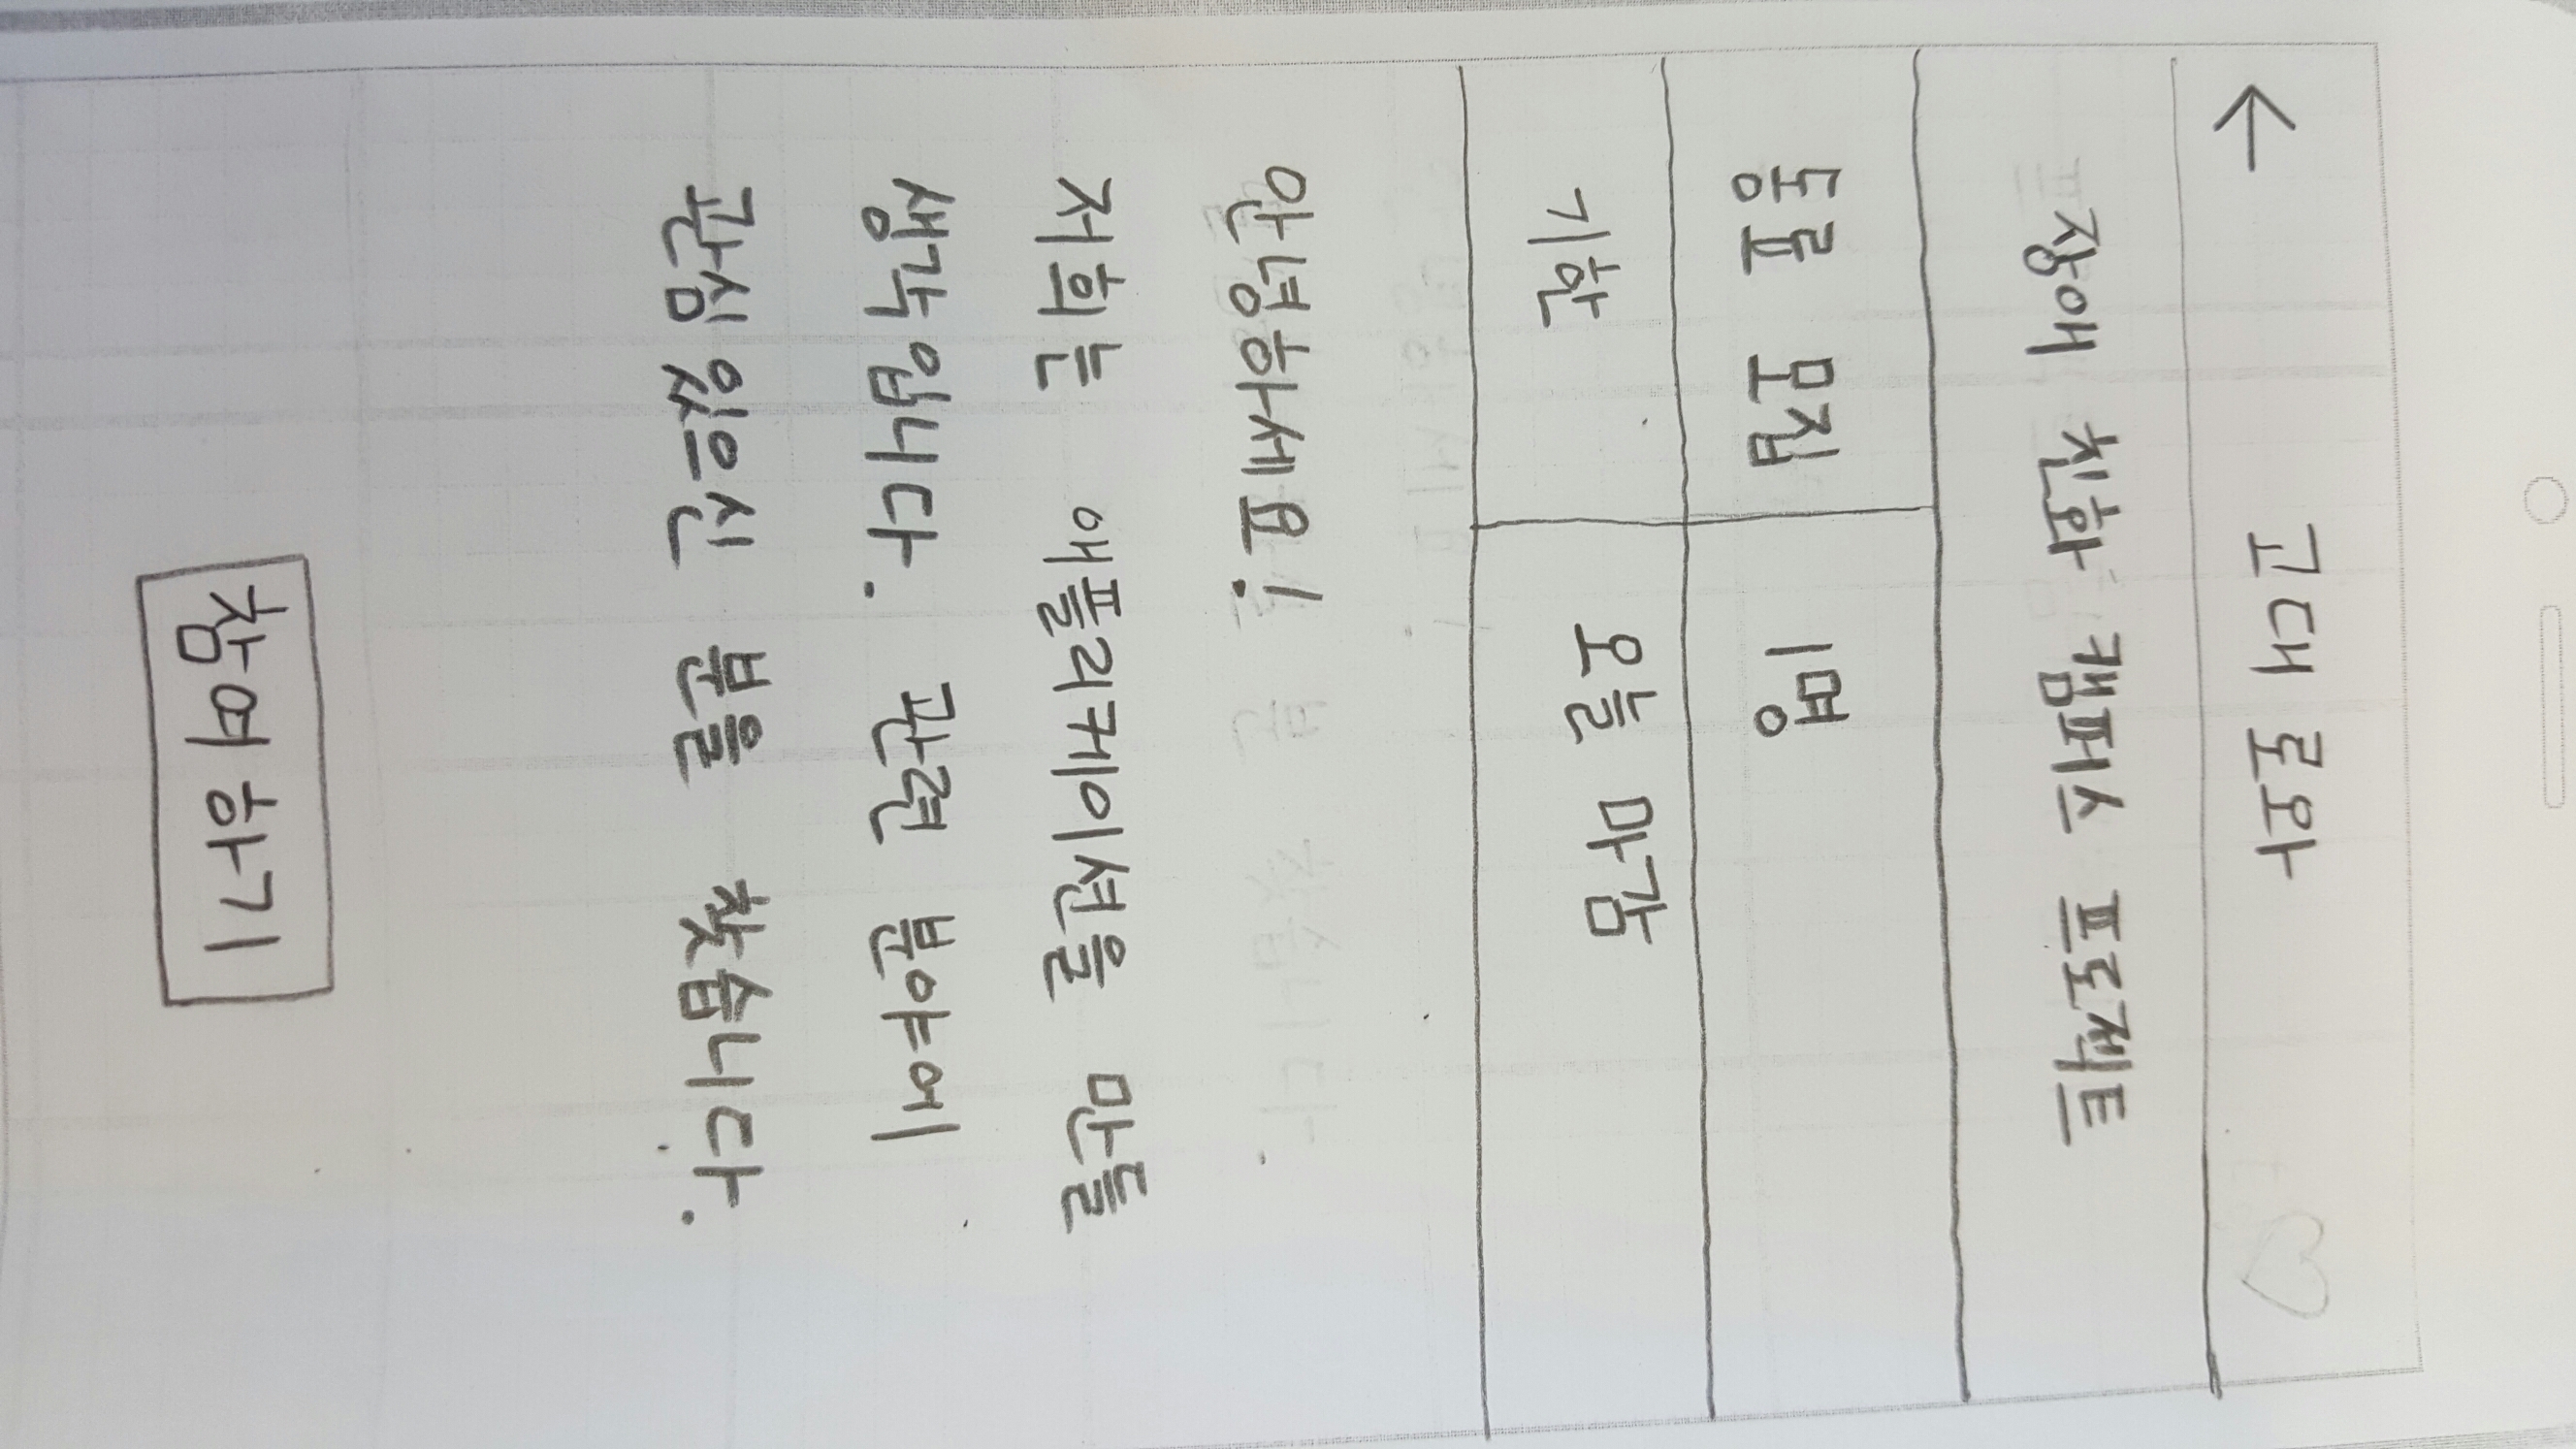 ← 고대로와 ♡
장애 친화 캠퍼스 프로젝트
동료 모집 1명
기한 오늘 마감
안녕하세요!
저희는 애플리케이션을 만들
생각입니다. 관련 분야에
관심있으신 분을 찾습니다.
참여하기